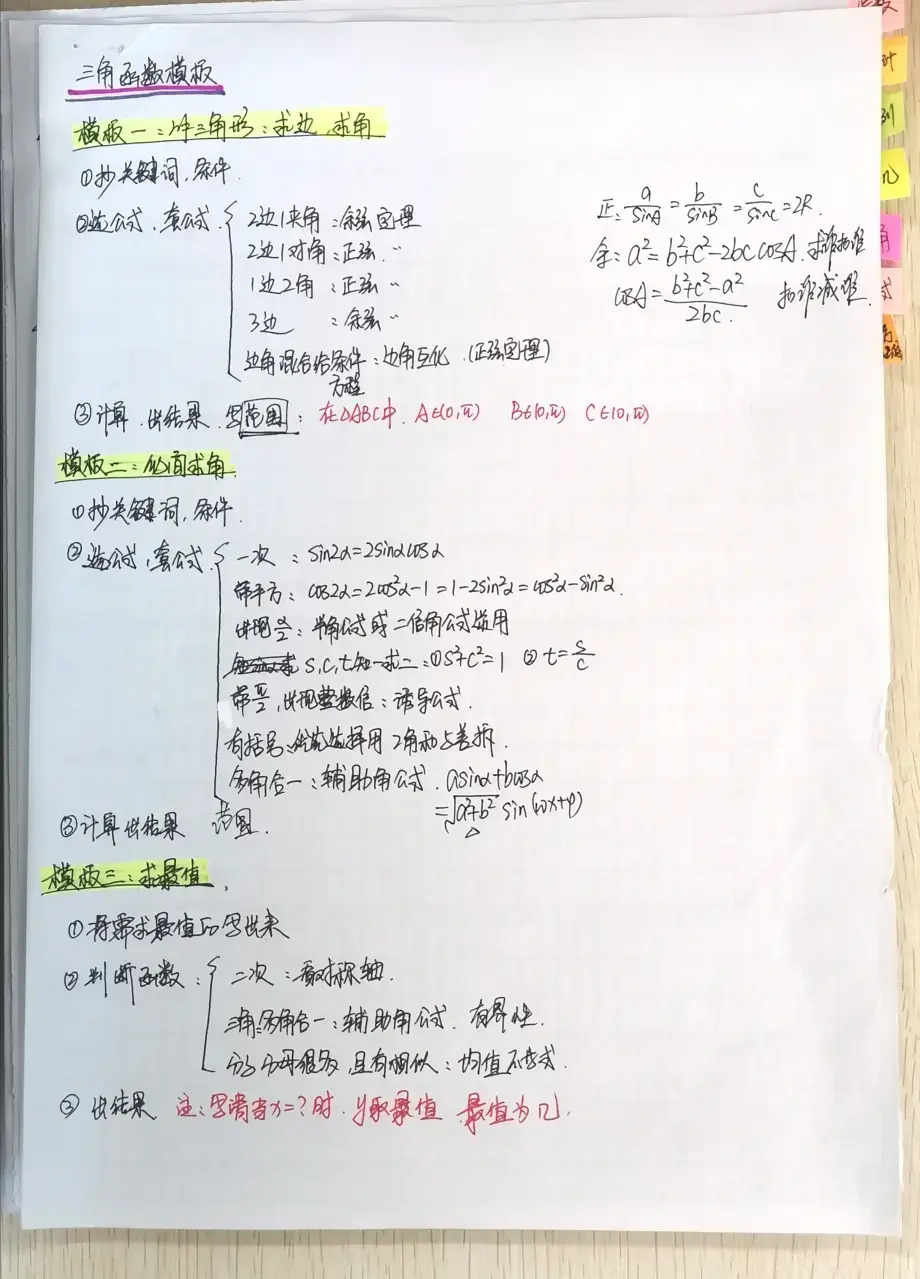 三角函数模板
模板一:解三角形:求边、求角
①抄关键词,条件.
②选公式、套公式.
2边1夹角:余弦定理
2边1对角:正弦 〃
1边2角:正弦 〃
3边 :余弦 〃
边角混合给条件:边角互化.(正弦定理)
方程
正: a/sinA = b/sinB = c/sinC = 2R.
余: a²=b²+c²-2bc cosA. 求谁抄谁
cosA= (b²+c²-a²)/2bc. 抄谁减谁.
③计算.出结果.写范围: 在△ABC中. A∈(0,π) B∈(0,π) C∈(0,π)
模板二:化简求角.
①抄关键词,条件.
②选公式,套公式.
一次 : sin2α=2sinαcosα
带平方: cos2α=2cos²α-1=1-2sin²α=cos²α-sin²α.
出现α/2: 半角公式或二倍角公式使用
s,c,t知一求二:①s²+c²=1 ②t=s/c
带π/2,出现整数倍:诱导公式.
有括号:优先选择用2角和与差拆.
多角合一:辅助角公式. asinα+bcosα
=√(a²+b²) sin(ωx+φ)
△
③计算出结果 范围.
模板三:求最值.
①将需求最值的写出来
②判断函数:
二次:看对称轴.
三角:多角合一:辅助角公式. 有界性.
分子分母很多,且有相似:均值不等式.
③出结果 注:写清当x=?时.y取最值 最值为几.